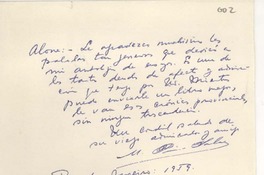 002
Alone: - Le agradezco muchísimo las
palabras tan generosas que dedicó a
mi antología de ensayos. Es una de
las tantas deudas de afecto y admira-
ción que tengo por Ud. Mientras
puedo enviarle un libro mejor,
le van esas crónicas provinciales
sin ninguna trascendencia.
Un cordial saludo de
su viejo admirador y amigo
M.
1959.